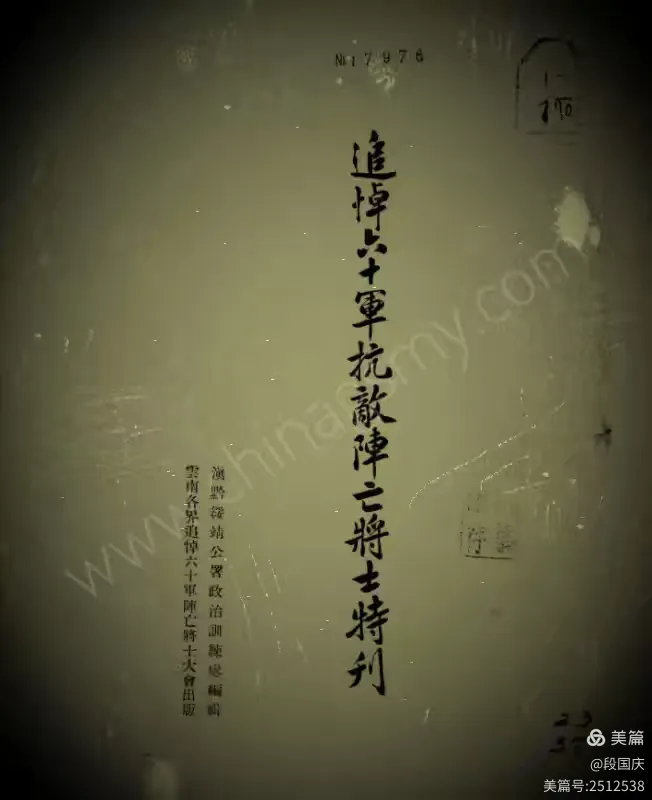 №17976
追悼六十軍抗敵陣亡將士特刊
滇黔綏靖公署政治訓練處編輯
雲南各界追悼六十軍陣亡將士大會出版
www.chinaarmy.com
美篇
@段国庆
美篇号:2512538